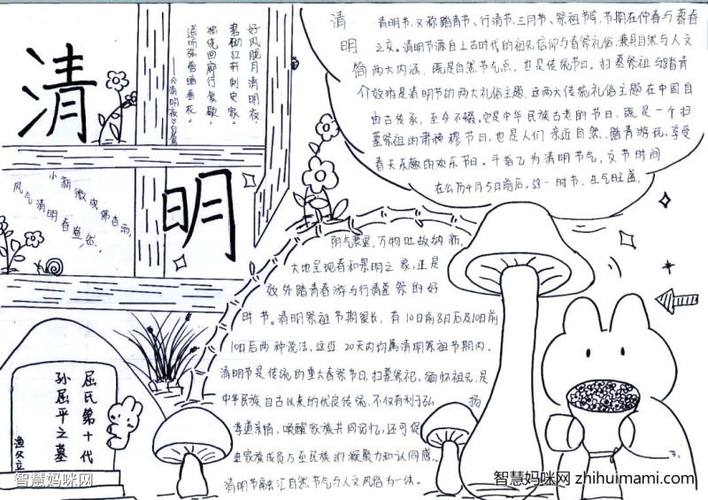 清
明
好风胧月清明夜
碧砌红轩刺史家
独绕回廊行复歇
遥听弦管暗看花
小楼微
风气清明春盎然
清
明
简
介
清明节，又称踏青节、行清节、三月节、祭祖节等，节期在仲春与暮春
之交。清明节源自上古时代的祖先信仰与春祭礼俗，兼具自然与人文
两大内涵，既是自然节气点，也是传统节日，扫墓祭祖与踏青
郊游是清明节的两大礼俗主题，这两大传统礼俗主题在中国自
由古传承，至今不辍。也是中华民族古老的节日，既是一个扫
墓祭祖的肃穆节日，也是人们亲近自然、踏青游玩、享受
春天乐趣的欢乐节日。斗指乙为清明节气，交节时间
在公历4月5日前后。这一时节，生气旺盛，
阴气衰退，万物吐故纳新，
大地呈现春和景明之象，正是
郊外踏青春游与行清墓祭的好
时节。清明祭祖节期很长，有10日前8日后及10日前
10日后两种说法，这近20天内均属清明祭祖节期内。
清明节是传统的重大春祭节日，扫墓祭祀、缅怀祖先，是
中华民族自古以来的优良传统，不仅有利于弘扬
孝道亲情、唤醒家族共同记忆，还可促
家族成员乃至民族的凝聚力和认同感。
清明节融汇自然节气与人文风俗为一体。
屈氏第十代
孙屈平之墓
渔父立
智慧妈咪网
智慧妈咪网 zhihuimami.com